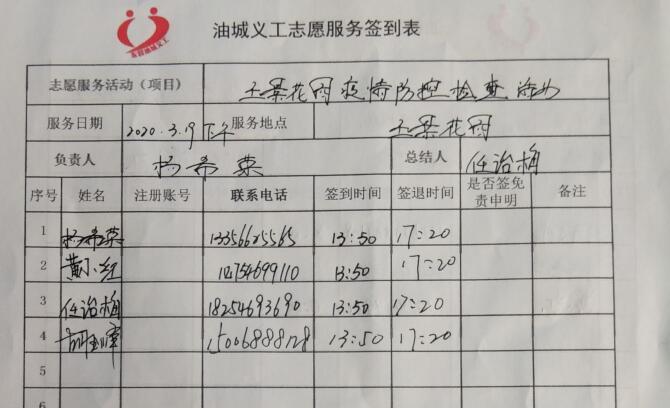 油城义工志愿服务签到表
志愿服务活动（项目） 玉景花园疫情防控检查活动
服务日期 2020.3.19下午 服务地点 玉景花园
负责人 杨希荣 总结人 任治梅
序号 姓名 注册账号 联系电话 签到时间 签退时间 是否签免责申明 备注
1 杨希荣 13:50 17:20
2 黄小红 13:50 17:20
3 任治梅 18254693690 13:50 17:20
4 15006888128 13:50 17:20
5
6